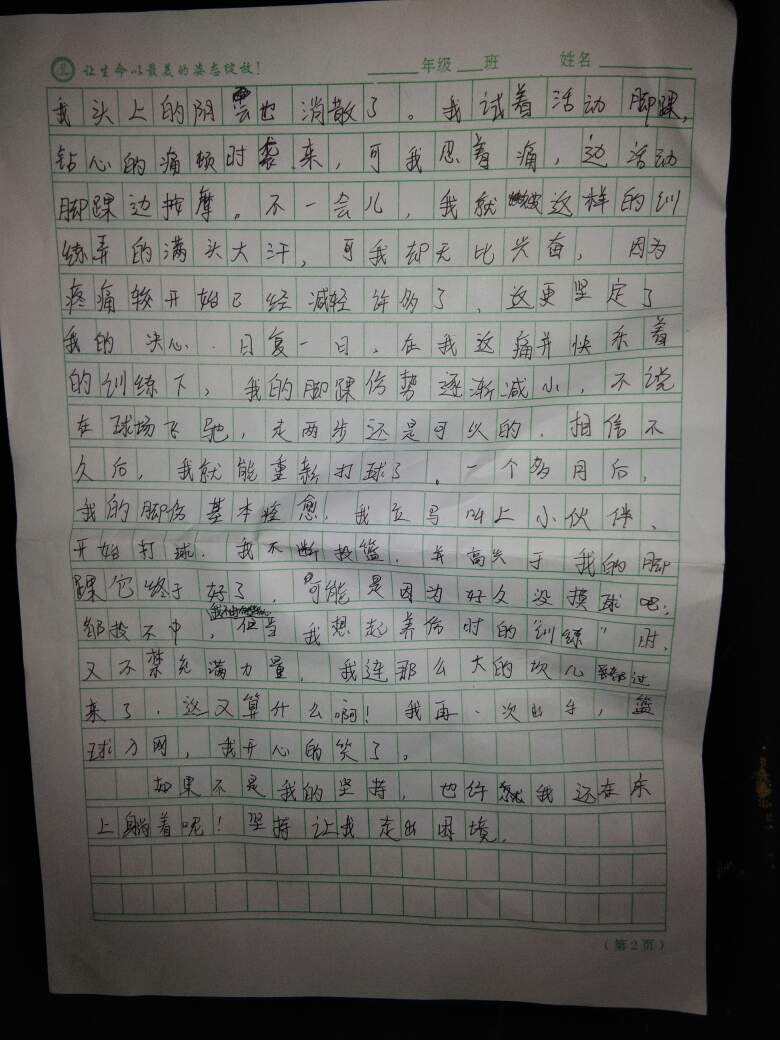 让生命以最美的姿态绽放!
年级 班 姓名
我头上的阴云也消散了。我试着活动脚踝,
钻心的痛顿时袭来,可我忍着痛,边活动
脚踝边按摩。不一会儿,我就被这样的训
练弄的满头大汗,可我却无比兴奋,因为
疼痛较开始已经减轻许多了,这更坚定了
我的决心.日复一日,在我这痛并快乐着
的训练下,我的脚踝伤势逐渐减小,不说
在球场飞驰,走两步还是可以的.相信不
久后,我就能重新打球了。一个多月后,
我的脚伤基本痊愈,我立马叫上小伙伴、
开始打球.我不断投篮.我高兴于我的脚
踝它终于好了,可能是因为好久没摸球吧,
都投不中,但当我想起养伤时的"训练"时,
又不禁充满力量,我连那么大的坎儿都过
来了,这又算什么啊!我再一次出手,篮
球刀网,我开心的笑了。
如果不是我的坚持,也许我还在床
上躺着呢!坚持让我走出困境.
(第2页)